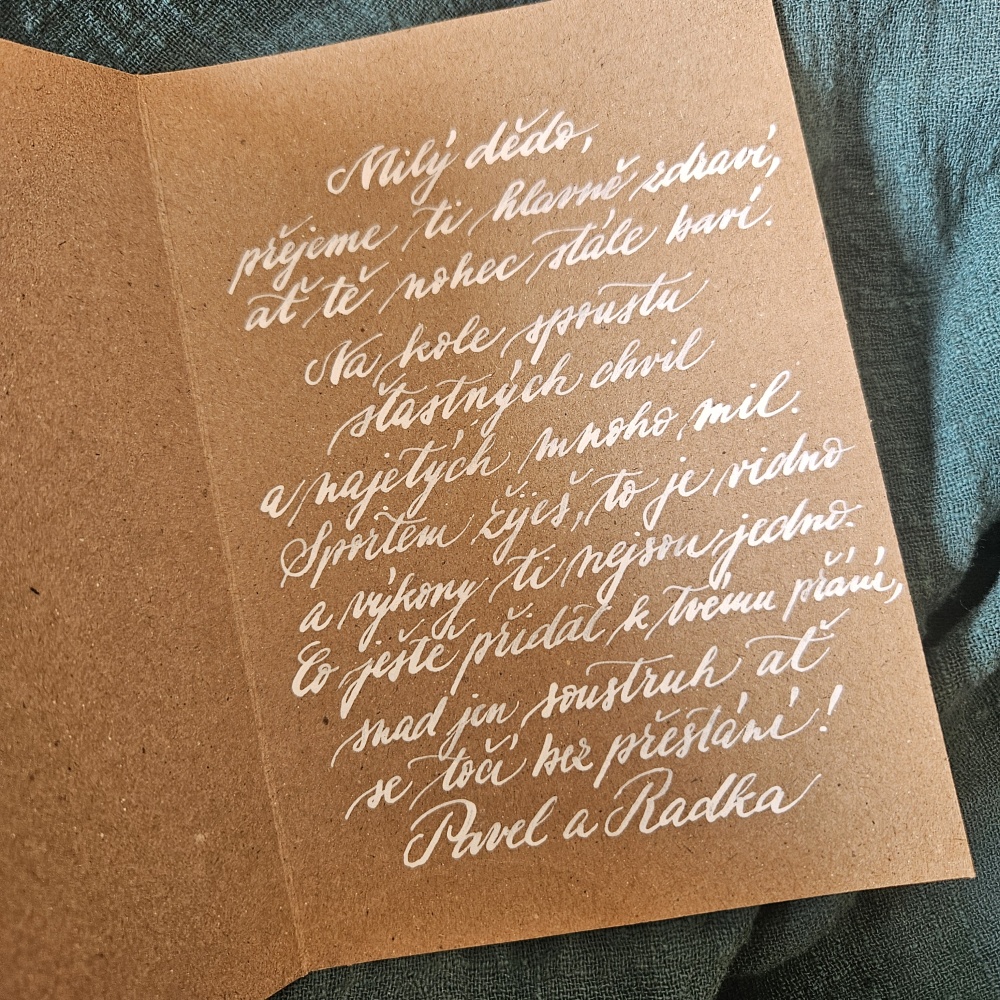 Milý dědo,
přejeme ti hlavně zdraví,
ať tě nohec stále baví.
Na kole spoustu
šťastných chvil
a najetých mnoho mil.
Sportem žiješ, to je vidno
a výkony ti nejsou jedno.
Co ještě přidat k tvému přání,
snad jen soustruh ať
se točí bez přestání!
Pavel a Radka